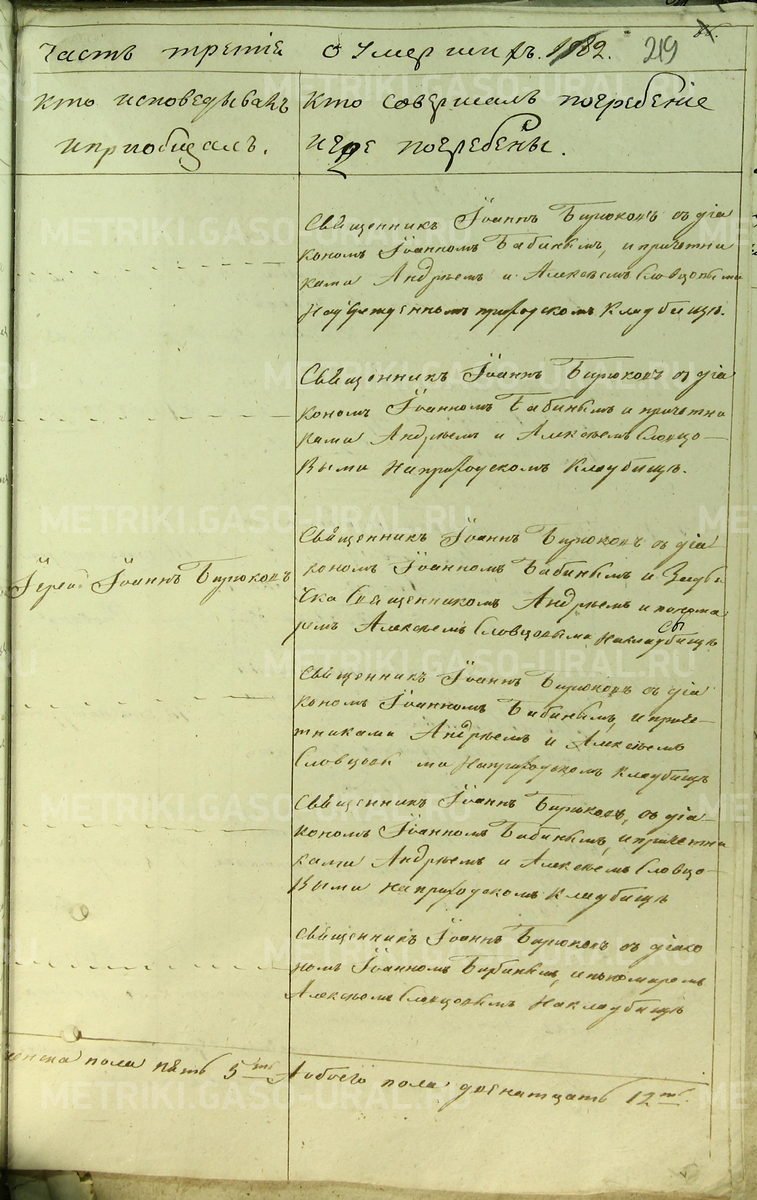 часть третiя о Умерших ъ. 1882. 219
Кто исповедывалъ
и приобщалъ.
Кто совершалъ погребенiе
и где погребены.
Священникъ Iоаннъ Бирюковъ съ дiа
кономъ Iоанномъ Бабинымъ, и причетни
ками Андреемъ и Алексеемъ Словцовыми
приходскомъ Кладбище.
Священникъ Iоаннъ Бирюковъ съ дiа
кономъ Iоанномъ Бабинымъ и причетни
ками Андреемъ и Алексеемъ Словцо-
выми на приходскомъ Кладбище.
Iерей Iоаннъ Бирюковъ
Священникъ Iоаннъ Бирюковъ съ дiа
кономъ Iоанномъ Бабинымъ и
Священникомъ Андреемъ и понома
ремъ Алексеемъ Словцовыми на кладбище
Священникъ Iоаннъ Бирюковъ съ дiа
кономъ Iоанномъ Бабинымъ, и приче-
тниками Андреемъ и Алексеемъ
Словцовы ми на приходскомъ кладбище
Священникъ Iоаннъ Бирюковъ, съ дiа-
кономъ Iоанномъ Бабинымъ, и причетни
ками Андреемъ и Алексеемъ Словцо-
выми на приходскомъ кладбище
Священникъ Iоаннъ Бирюковъ съ дiако
номъ Iоанномъ Бабинымъ, и пономаремъ
Алексеемъ Словцовымъ на кладбище
женска пола пять 5ть А обоего пола двенатцать 12ть.
METRIKI.GASO-URAL.RU